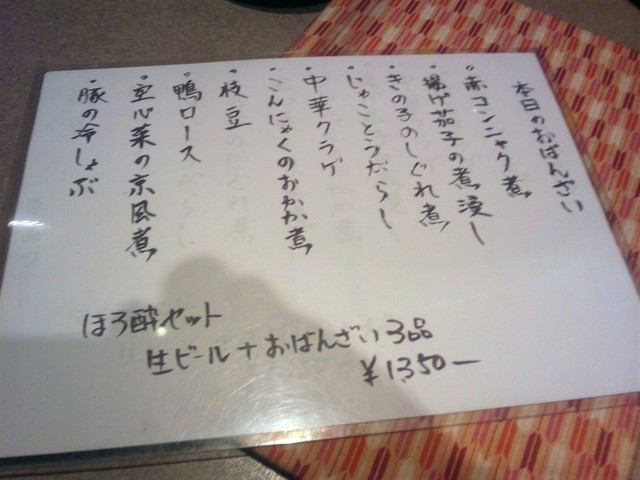 本日のおばんざい
・赤コンニャク煮
・揚げ茄子の煮浸し
・きの子のしぐれ煮
・じゃことうがらし
・中華クラゲ
・こんにゃくのおかか煮
・枝豆
・鴨ロース
・空心菜の京風煮
・豚の冷しゃぶ
ほろ酔セット
生ビール+おばんざい3品
¥1350ー